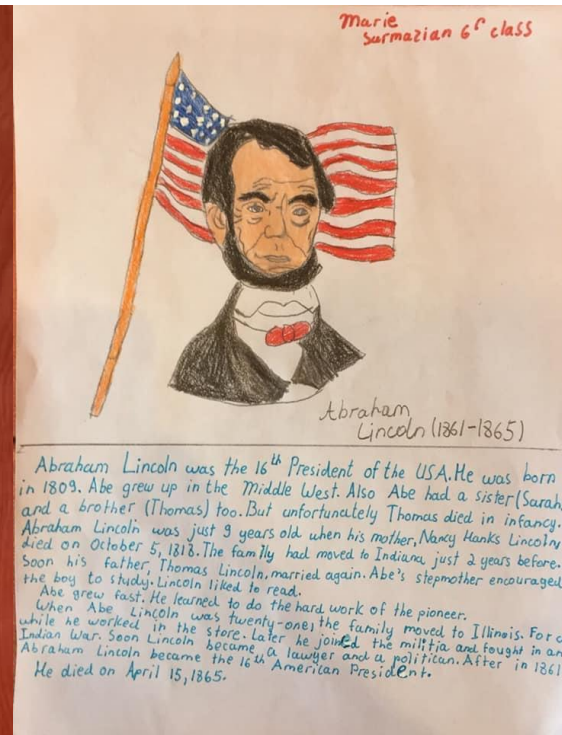 Marie
Surmazian 6r class
Abraham
Lincoln (1861-1865)
Abraham Lincoln was the 16th President of the USA. He was born
in 1809. Abe grew up in the Middle West. Also Abe had a sister (Sarah
and a brother (Thomas) too. But unfortunately Thomas died in infancy.
Abraham Lincoln was just 9 years old when his mother, Nancy Hanks Lincoln,
died on October 5, 1818. The family had moved to Indiana just 2 years before.
Soon his father, Thomas Lincoln, married again. Abe's stepmother encouraged
the boy to study. Lincoln liked to read.
Abe grew fast. He learned to do the hard work of the pioneer.
When Abe Lincoln was twenty-one, the family moved to Illinois. For a
while he worked in the store. Later he joined the militia and fought in an
Indian War. Soon Lincoln became a lawyer and a politican. After in 1861
Abraham Lincoln became the 16th American President.
He died on April 15, 1865.